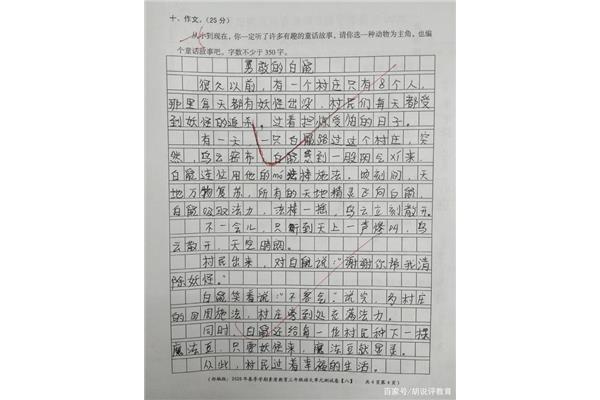 十、作文。(25分)
从小到现在,你一定听了许多有趣的童话故事,请你选一种动物为主角,也编
个童话故事吧。字数不少于350字。
勇敢的白鼠
很久以前,有一个村庄只有8个人,
那里每天都有妖怪出没,村民们每天都受
到妖怪的追杀,过着担惊受怕的日子。
有一天,一只白鼠路过这个村庄,突
然,乌云密布,白鼠感到一股阴气对来,
白鼠连忙用他的mó法棒施法。顷刻间,天
地万物复苏,所有的天地精灵飞向白鼠,
白鼠吸取法力,法棒一摇,乌云立刻散开。
不一会儿,只听到天上一声惨叫,乌
云散开,天空晴朗。
村民出来,对白鼠说:“谢谢你帮我清
除妖怪。”
白鼠笑着说:“不客气。”说完,为村庄
的四周施法,村庄受到处充满法力。
同时,白鼠还给每一位村民种下一棵
魔法豆,只要妖怪来,魔法豆就显灵。
从此,村民过着幸福的生活。
(部编版:2020年春季学期素质教育三年级语文单元测试卷【八】 共4页第4页)
百家号/胡说评教育